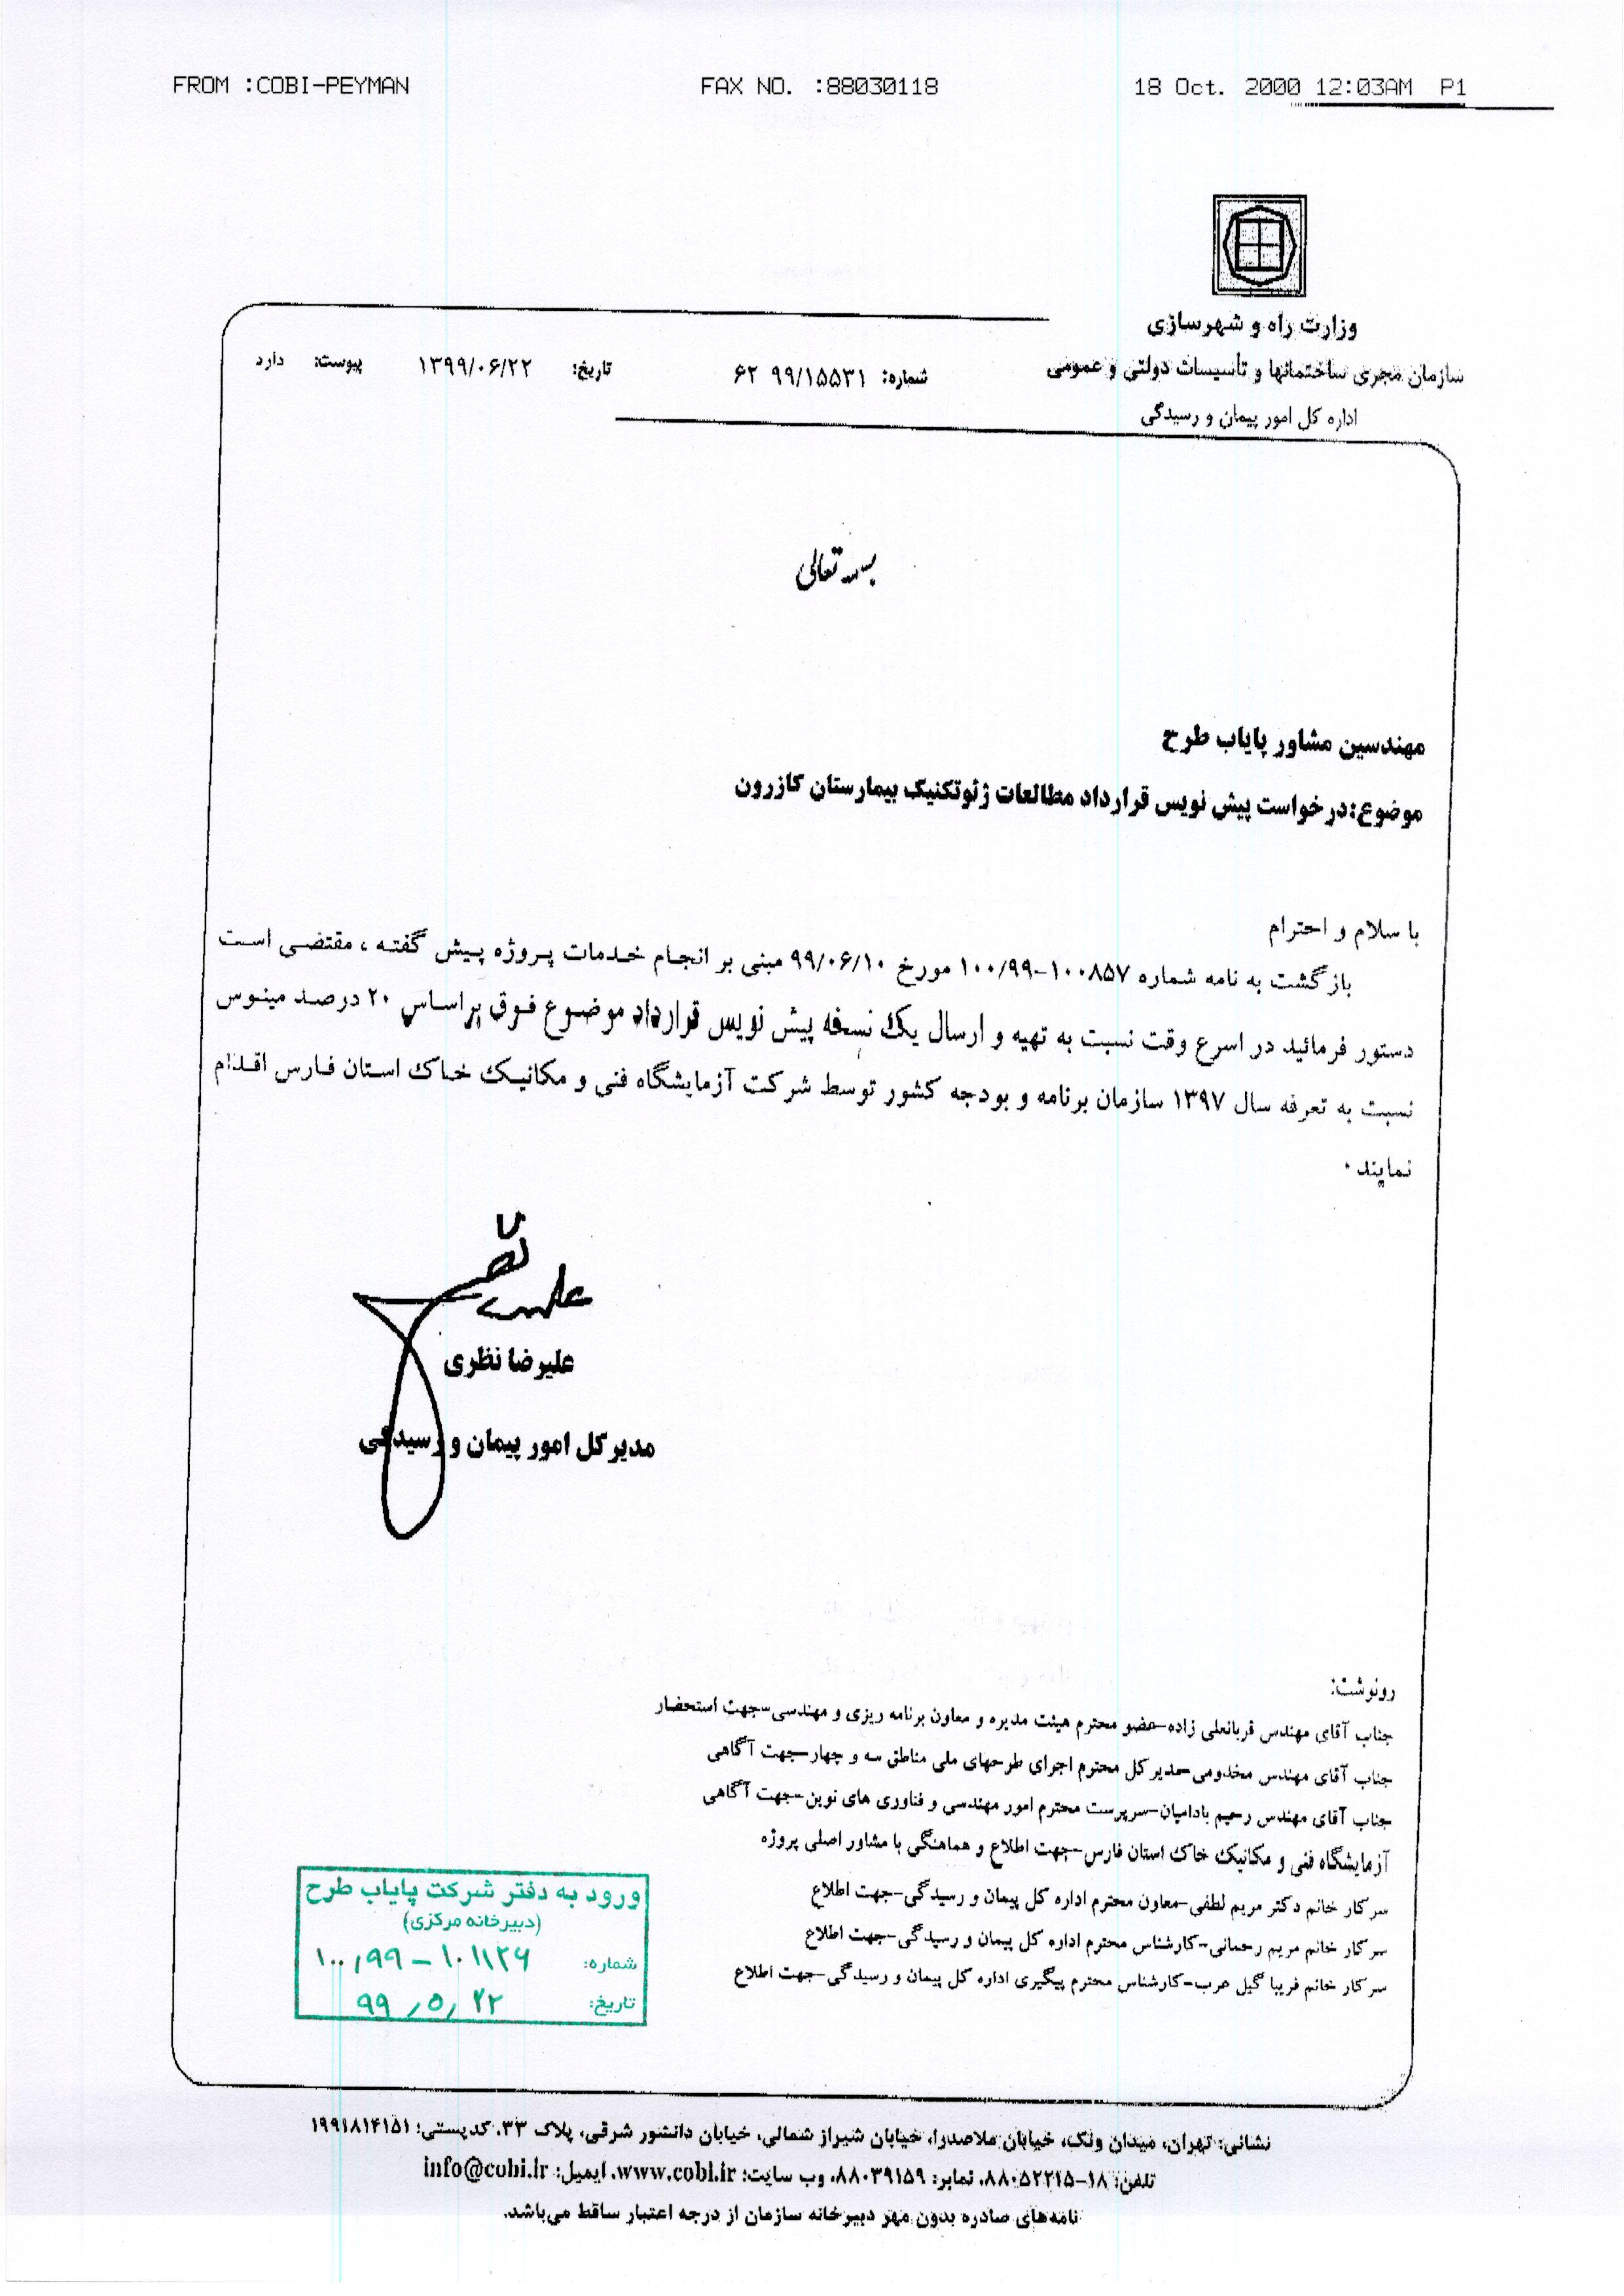 FROM :COBI-PEYMAN FAX NO. :88030118 18 Oct. 2000 12:03AM P1
وزارت راه و شهرسازی
سازمان مجری ساختمانها و تأسیسات دولتی و عمومی
اداره کل امور پیمان و رسیدگی
شماره: ۹۹/۱۵۵۳۱ ۶۲ تاریخ: ۱۳۹۹/۰۶/۲۲ پیوست: دارد
بسمه تعالی
مهندسین مشاور پایاب طرح
موضوع:درخواست پیش نویس قرارداد مطالعات ژئوتکنیک بیمارستان کازرون
با سلام و احترام
بازگشت به نامه شماره ۱۰۰۸۵۷-۱۰۰/۹۹ مورخ ۹۹/۰۶/۱۰ مبنی بر انجام خدمات پروژه پیش گفته ، مقتضی است
دستور فرمائید در اسرع وقت نسبت به تهیه و ارسال یک نسخه پیش نویس قرارداد موضوع فوق براساس ۲۰ درصد مینوس
نسبت به تعرفه سال ۱۳۹۷ سازمان برنامه و بودجه کشور توسط شرکت آزمایشگاه فنی و مکانیک خاک استان فارس اقدام
نمایند .
علیرضا نظری
مدیر کل امور پیمان و رسیدگی
رونوشت:
جناب آقای مهندس قربانعلی زاده-عضو محترم هیئت مدیره و معاون برنامه ریزی و مهندسی-جهت استحضار
جناب آقای مهندس مخدومی-مدیر کل محترم اجرای طرحهای ملی مناطق سه و چهار-جهت آگاهی
جناب آقای مهندس رحیم بادامیان-سرپرست محترم امور مهندسی و فناوری های نوین-جهت آگاهی
آزمایشگاه فنی و مکانیک خاک استان فارس-جهت اطلاع و هماهنگی با مشاور اصلی پروژه
سرکار خانم دکتر مریم لطفی-معاون محترم اداره کل پیمان و رسیدگی-جهت اطلاع
سرکار خانم مریم رحمانی-کارشناس محترم اداره کل پیمان و رسیدگی-جهت اطلاع
سرکار خانم فریبا گیل عرب-کارشناس محترم پیگیری اداره کل پیمان و رسیدگی-جهت اطلاع
ورود به دفتر شرکت پایاب طرح
(دبیرخانه مرکزی)
شماره: ۱۰۰/۹۹ - ۱۰۱۱۲۶
تاریخ: ۹۹/۵/۲۲
نشانی: تهران، میدان ونک، خیابان ملاصدرا، خیابان شیراز شمالی، خیابان دانشور شرقی، پلاک ۳۳، کدپستی: ۱۹۹۱۸۱۴۱۵۱
تلفن: ۱۸-۸۸۰۵۲۲۱۵، نمابر: ۸۸۰۳۹۱۵۹، وب سایت: www.cobi.ir، ایمیل: info@cobi.ir
نامه‌های صادره بدون مهر دبیرخانه سازمان از درجه اعتبار ساقط می‌باشد.